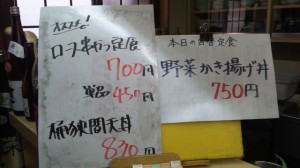 オススメ!
ロースかつ定食
700円
単品 450円
桶狭間天丼
830円
本日の日替定食
野菜かき揚げ丼
750円